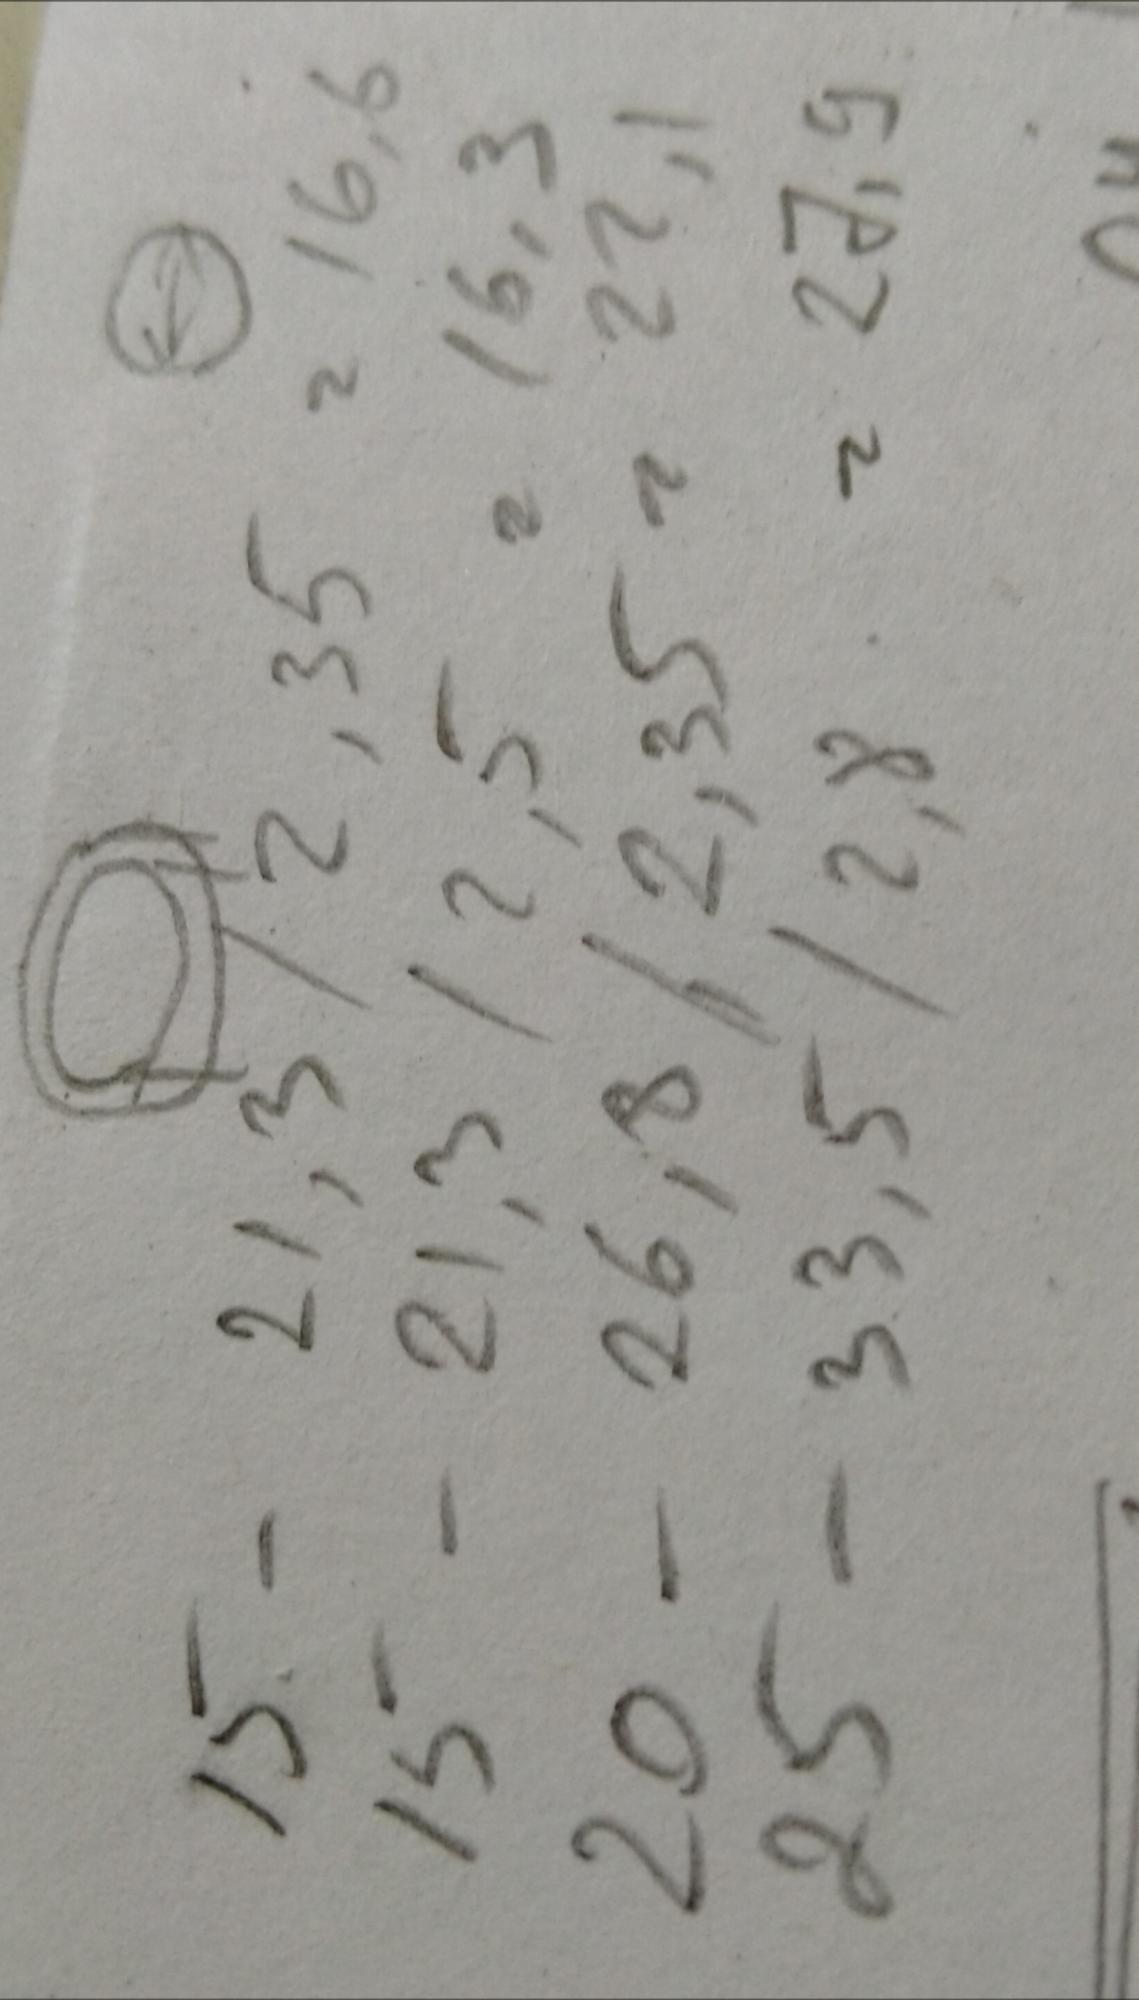 15 - 21,3 / 2,35 = 16,6
15 - 21,3 / 2,5 = 16,3
20 - 26,8 / 2,35 = 22,1
25 - 33,5 / 2,8 = 27,9